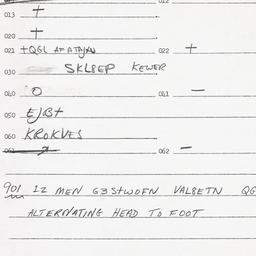 012
013 +
020 +
021 +QGL 022 +
030 SKLBEP KEWER
040 0 041 -
050 EJBT
060 KROKVES
061 062 -
901 12 MEN G3StWOFN VALBETN QG
ALTERNATING HEAD TO FOOT